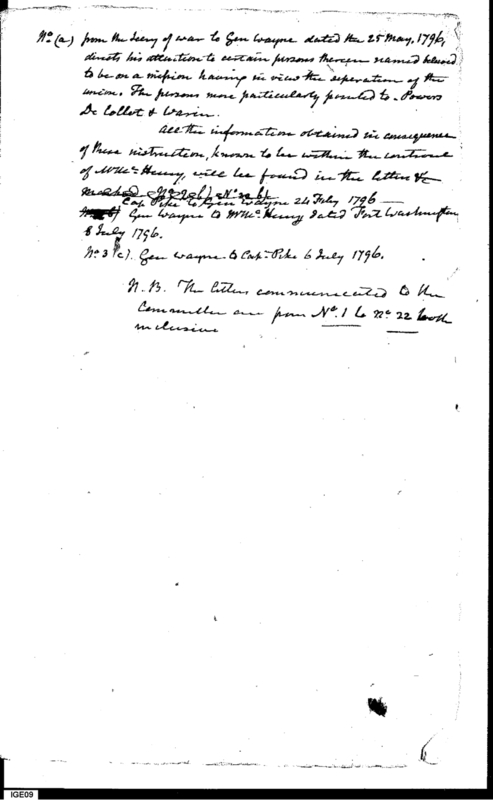 No (a) from the Secry of war to Gen Wayne dated the 25 May, 1796,
directs his attention to certain persons therein named believed
to be on a mission having in view the seperation of the
union. The persons more particularly pointed to - Powers
De Collot & Warin.
All the information obtained in consequence
of these instruction, known to be within the controul
of Mr McHenry, will be found in the letters &c
marked
Cap Pike to Gen Wayne 24 July 1796
b) Gen Wayne to Mr McHenry dated Fort Washington
8 July 1796.
No 3 (c). Gen Wayne to Capt. Pike 6 July 1796.
N. B. The letters communicated to the
Committee are from No. 1 to No. 22 both
inclusive
IGE09